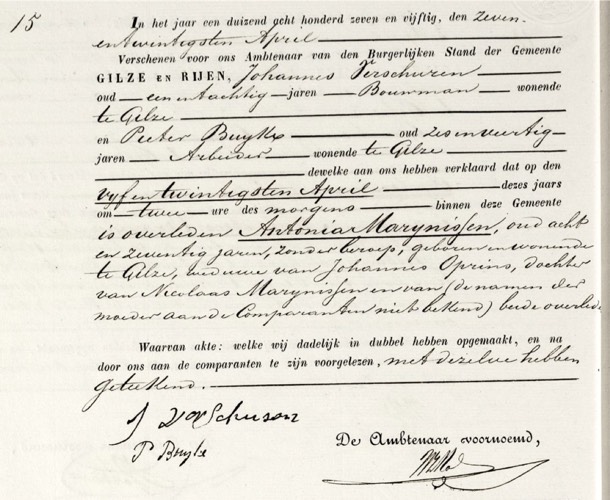 15
In het jaar een duizend acht honderd zeven en vijftig, den zeven-
entwintigsten April
Verschenen voor ons Ambtenaar van den Burgerlijken Stand der Gemeente
GILZE EN RIJEN, Johannes Verschuren
oud een en tachtig jaren Bouwman wonende
te Gilze
en Pieter Buyks oud zesenveertig
jaren Arbeider wonende te Gilze
dewelke aan ons hebben verklaard dat op den
vyfentwintigsten April dezes jaars
om twee ure des morgens binnen deze Gemeente
is overleden Antonia Marynissen, oud acht
en zeventig jaren, zonder beroep, geboren en wonende
te Gilze, weduwe van Johannes Oprins, dochter
van Nicolaas Marynissen en van (de namen der
moeder aan de Comparanten niet bekend) beide overlede
Waarvan akte: welke wij dadelijk in dubbel hebben opgemaakt, en na
door ons aan de comparanten te zijn voorgelezen, met dezelve hebben
Geteekend.
J Verschuren
P Buykx
De Ambtenaar voornoemd,